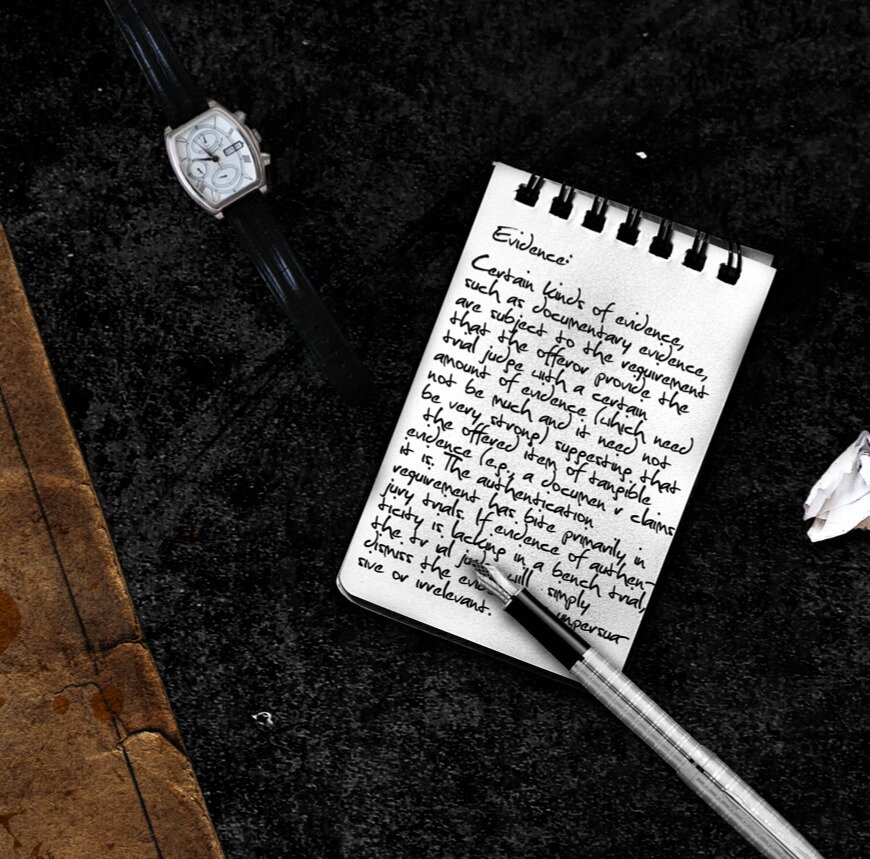 Evidence:
Certain kinds of evidence,
such as documentary evidence,
are subject to the requirement
that the offeror provide the
trial judge with a certain
amount of evidence (which need
not be much and it need not
be very strong) suggesting that
the offered item of tangible
evidence (e.g., a documen v claims
it is. The authentication
requirement has bite primarily in
jury trials. If evidence of authen-
ticity is lacking in a bench trial,
the tr ial will simply
dismiss the unpersua
sive or irrelevant.